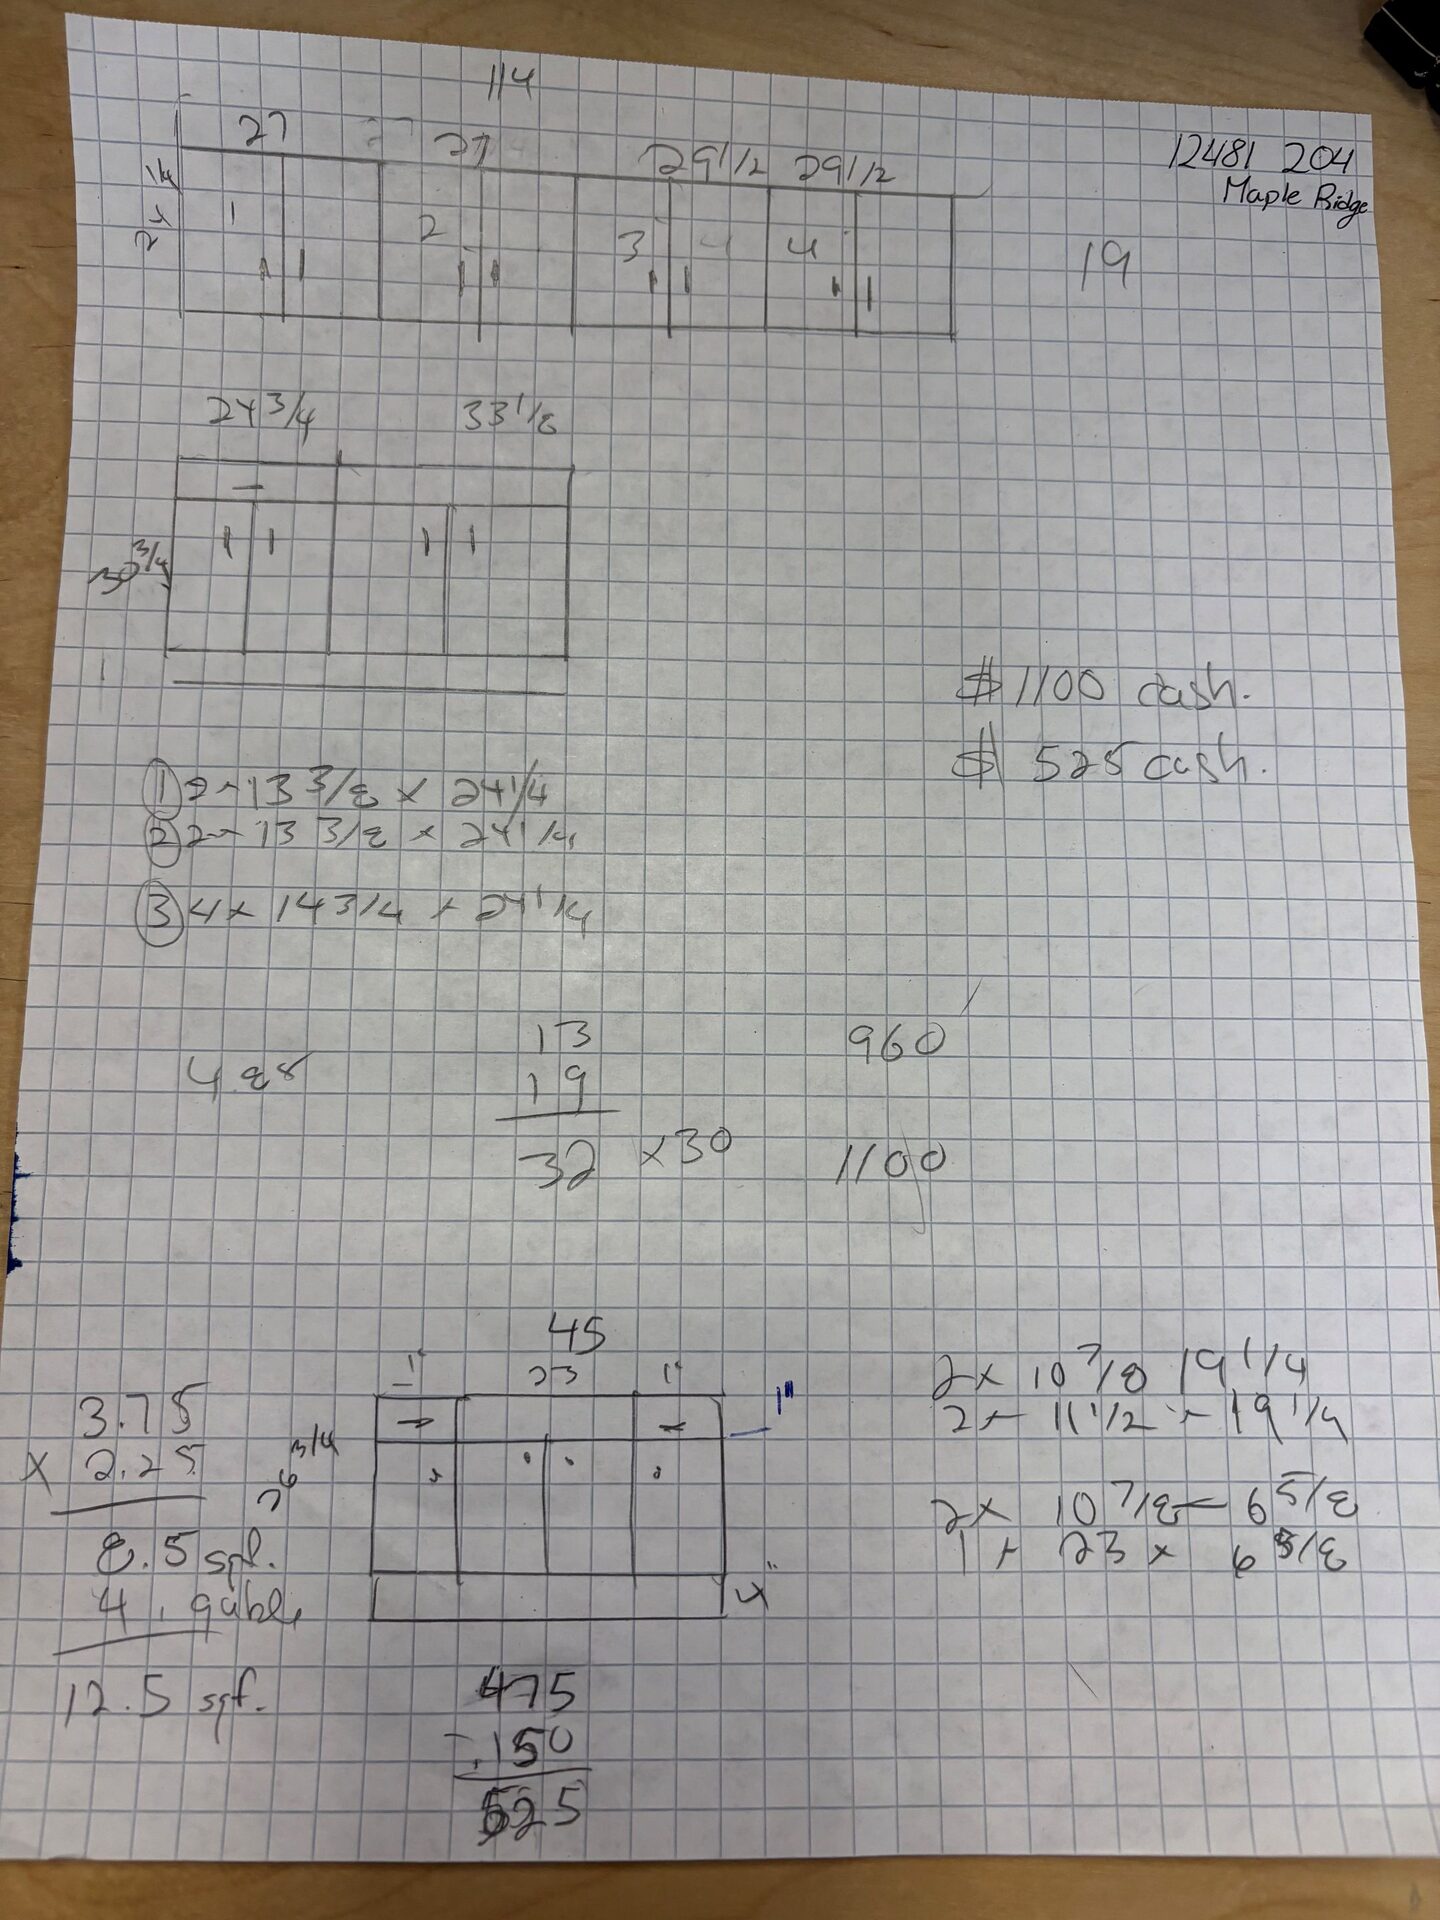 114
12481 204
Maple Ridge
27 27 29 1/2 29 1/2
24 1/4
1 2 3 4 4
19
24 3/4 33 1/8
30 3/4
1
$1100 cash.
$525 cash.
① 2 - 13 3/8 x 24 1/4
② 2 - 13 3/8 x 24 1/4
③ 4 x 14 3/4 x 24 1/4
13
19
32 x30
960
1100
45
1" 23 1"
1"
26 3/4
4"
3.75
x 2.25
8.5 sqf.
4. gable
12.5 sqf.
2x 10 7/8 19 1/4
2x 11 1/2 x 19 1/4
2x 10 7/8 - 6 5/8
1 x 23 x 6 5/8
475
150
525